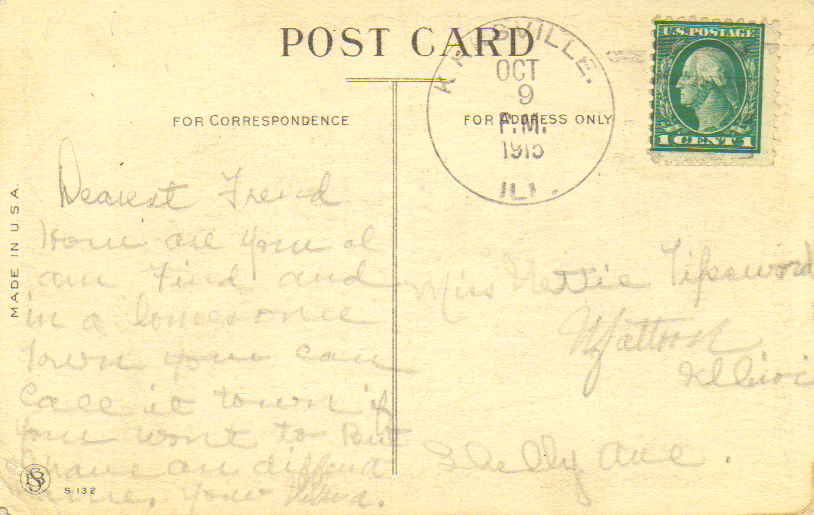 POST CARD
OCT
9
P.M.
1915
ILL.
U.S. POSTAGE
1 CENT 1
FOR CORRESPONDENCE
FOR ADDRESS ONLY
MADE IN U.S.A.
Dearest Frend
How are you I
am find and
in a lonesome
town you can
call it town if
you wont to But
I have an
Your
Miss Nettie Tipsword
Mattoon
Illinoi
Shelby Ave.
S 132